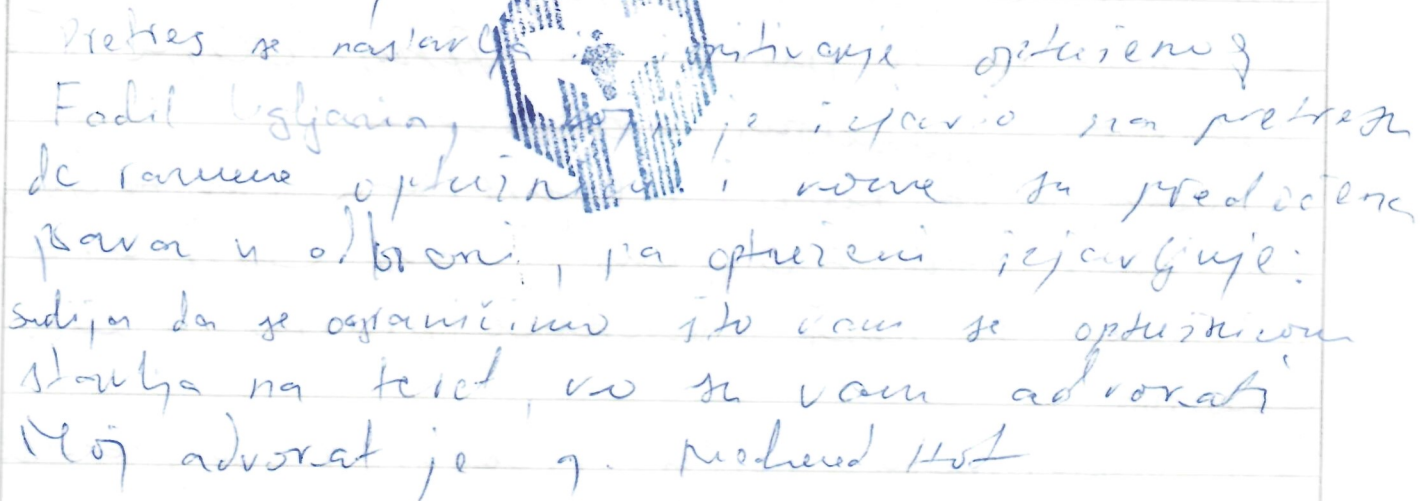 Pretres se nastavlja ispitivanje optuženog
Fadil Ugljanin, koji je izjavio na pretresu
da razume optužnicu i su predočena
prava u odbrani, pa optuženi izjavljuje:
sudija da se ograničimo što vam se optužnicom
stavlja na teret, ko su vam advokati
Moj advokat je g. Mehmed Hot